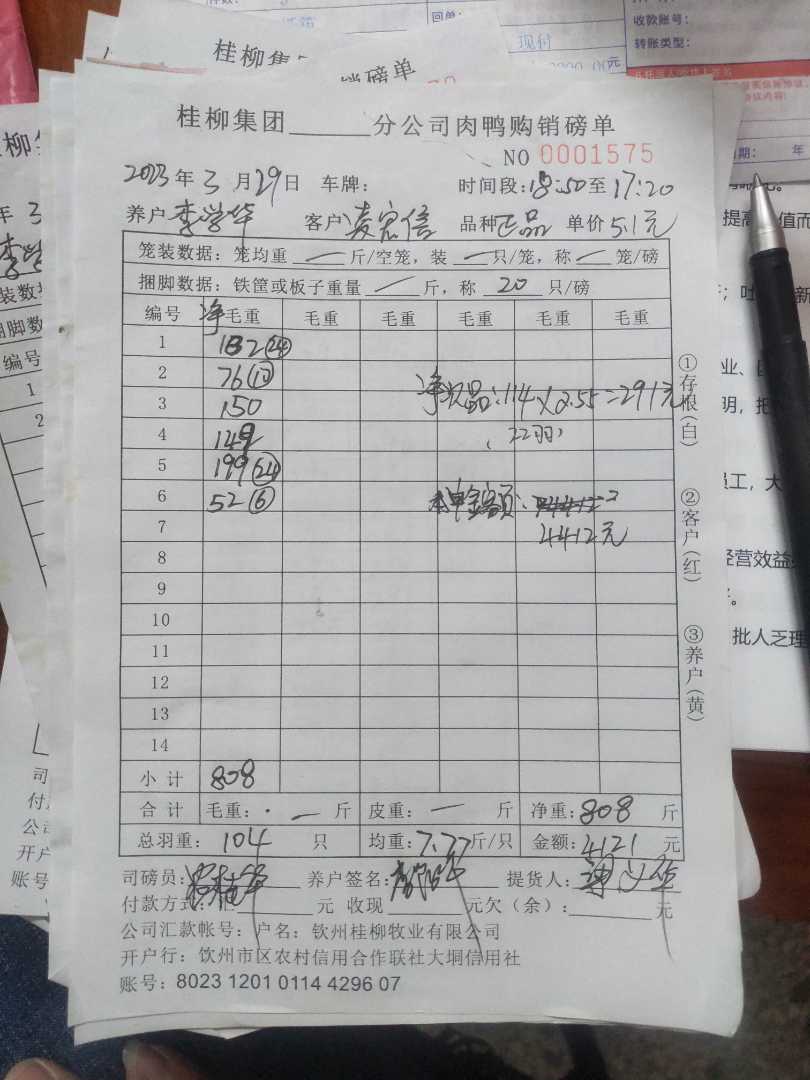 桂柳集团______分公司肉鸭购销磅单
NO 0001575
2023年3月29日 车牌: 时间段:18:50至17:20
养户李学华 客户凌宏信 品种正品 单价5.1元
笼装数据: 笼均重 一 斤/空笼, 装 一 只/笼, 称 一 笼/磅
捆脚数据: 铁筐或板子重量 一 斤, 称 20 只/磅
编号 净毛重 毛重 毛重 毛重 毛重 毛重
1 182(24)
2 76(10)
3 150
4 149
5 199(24)
6 52(6)
净次品:114×2.55=291元
(22羽)
7
4412元
8
9
10
11
12
13
14
小计 808
合计 毛重: 一 斤 皮重: 一 斤 净重:808 斤
总羽重: 104 只 均重:7.77斤/只 金额:4121 元
司磅员: 养户签名: 提货人:
付款方式:汇 元 收现 元欠(余): 元
公司汇款帐号: 户名: 钦州桂柳牧业有限公司
开户行: 饮州市区农村信用合作联社大垌信用社
账号: 8023 1201 0114 4296 07
①存根(白)
②客户(红)
③养户(黄)
桂柳集
销磅单
回单:
现付
收款账号:
转账类型: